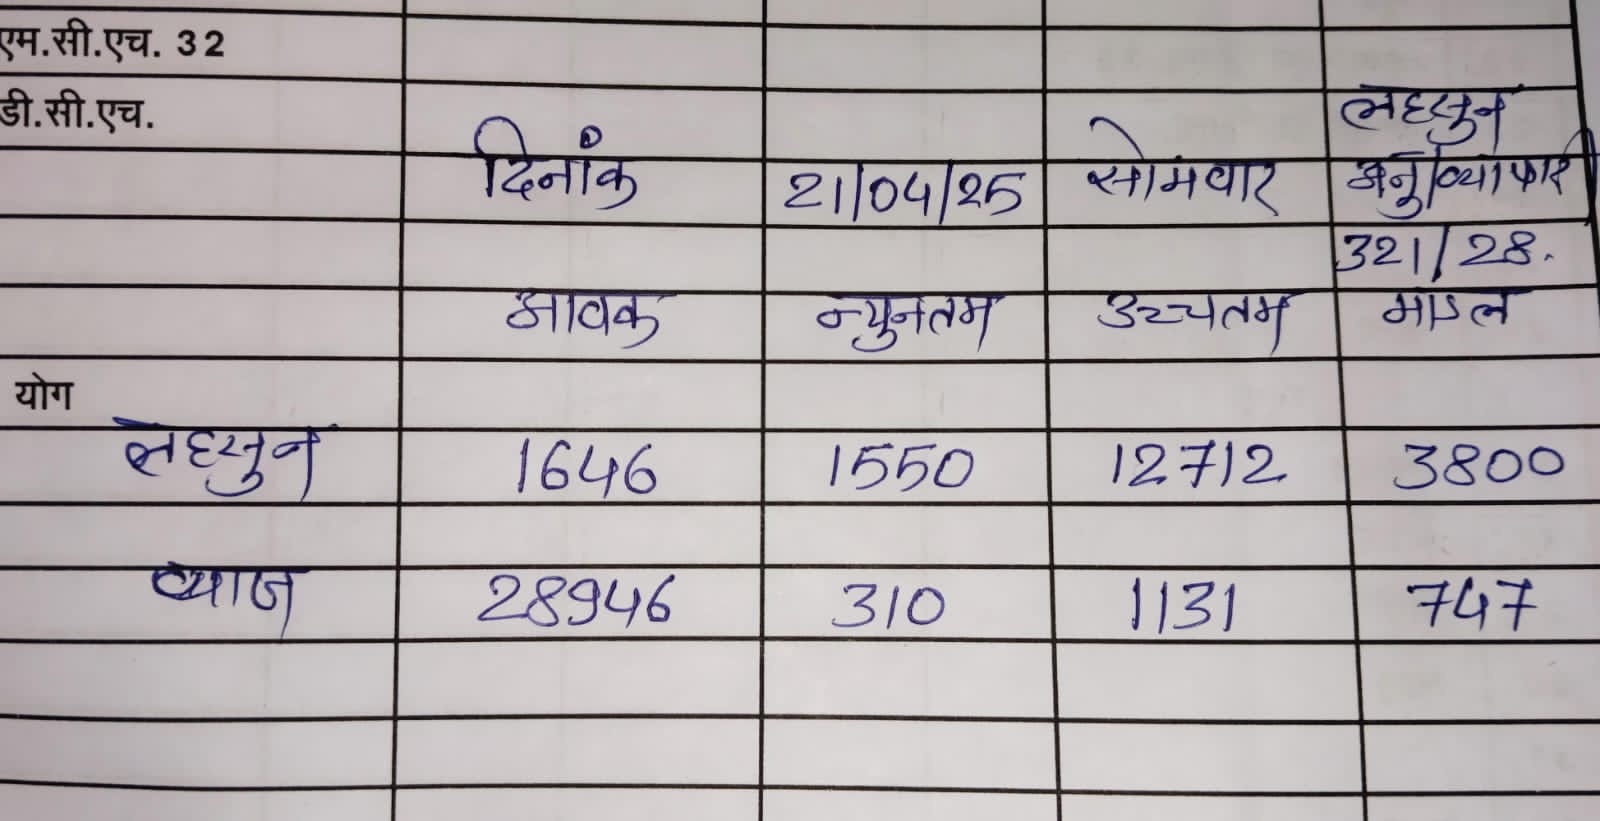 एम.सी.एच. 32
डी.सी.एच. लहसुन
दिनांक 21/04/25 सोमवार अनु/व्यापारी
321/28.
आवक न्युनतम उच्चतम माडल
योग
लहसुन 1646 1550 12712 3800
प्याज 28946 310 1131 747